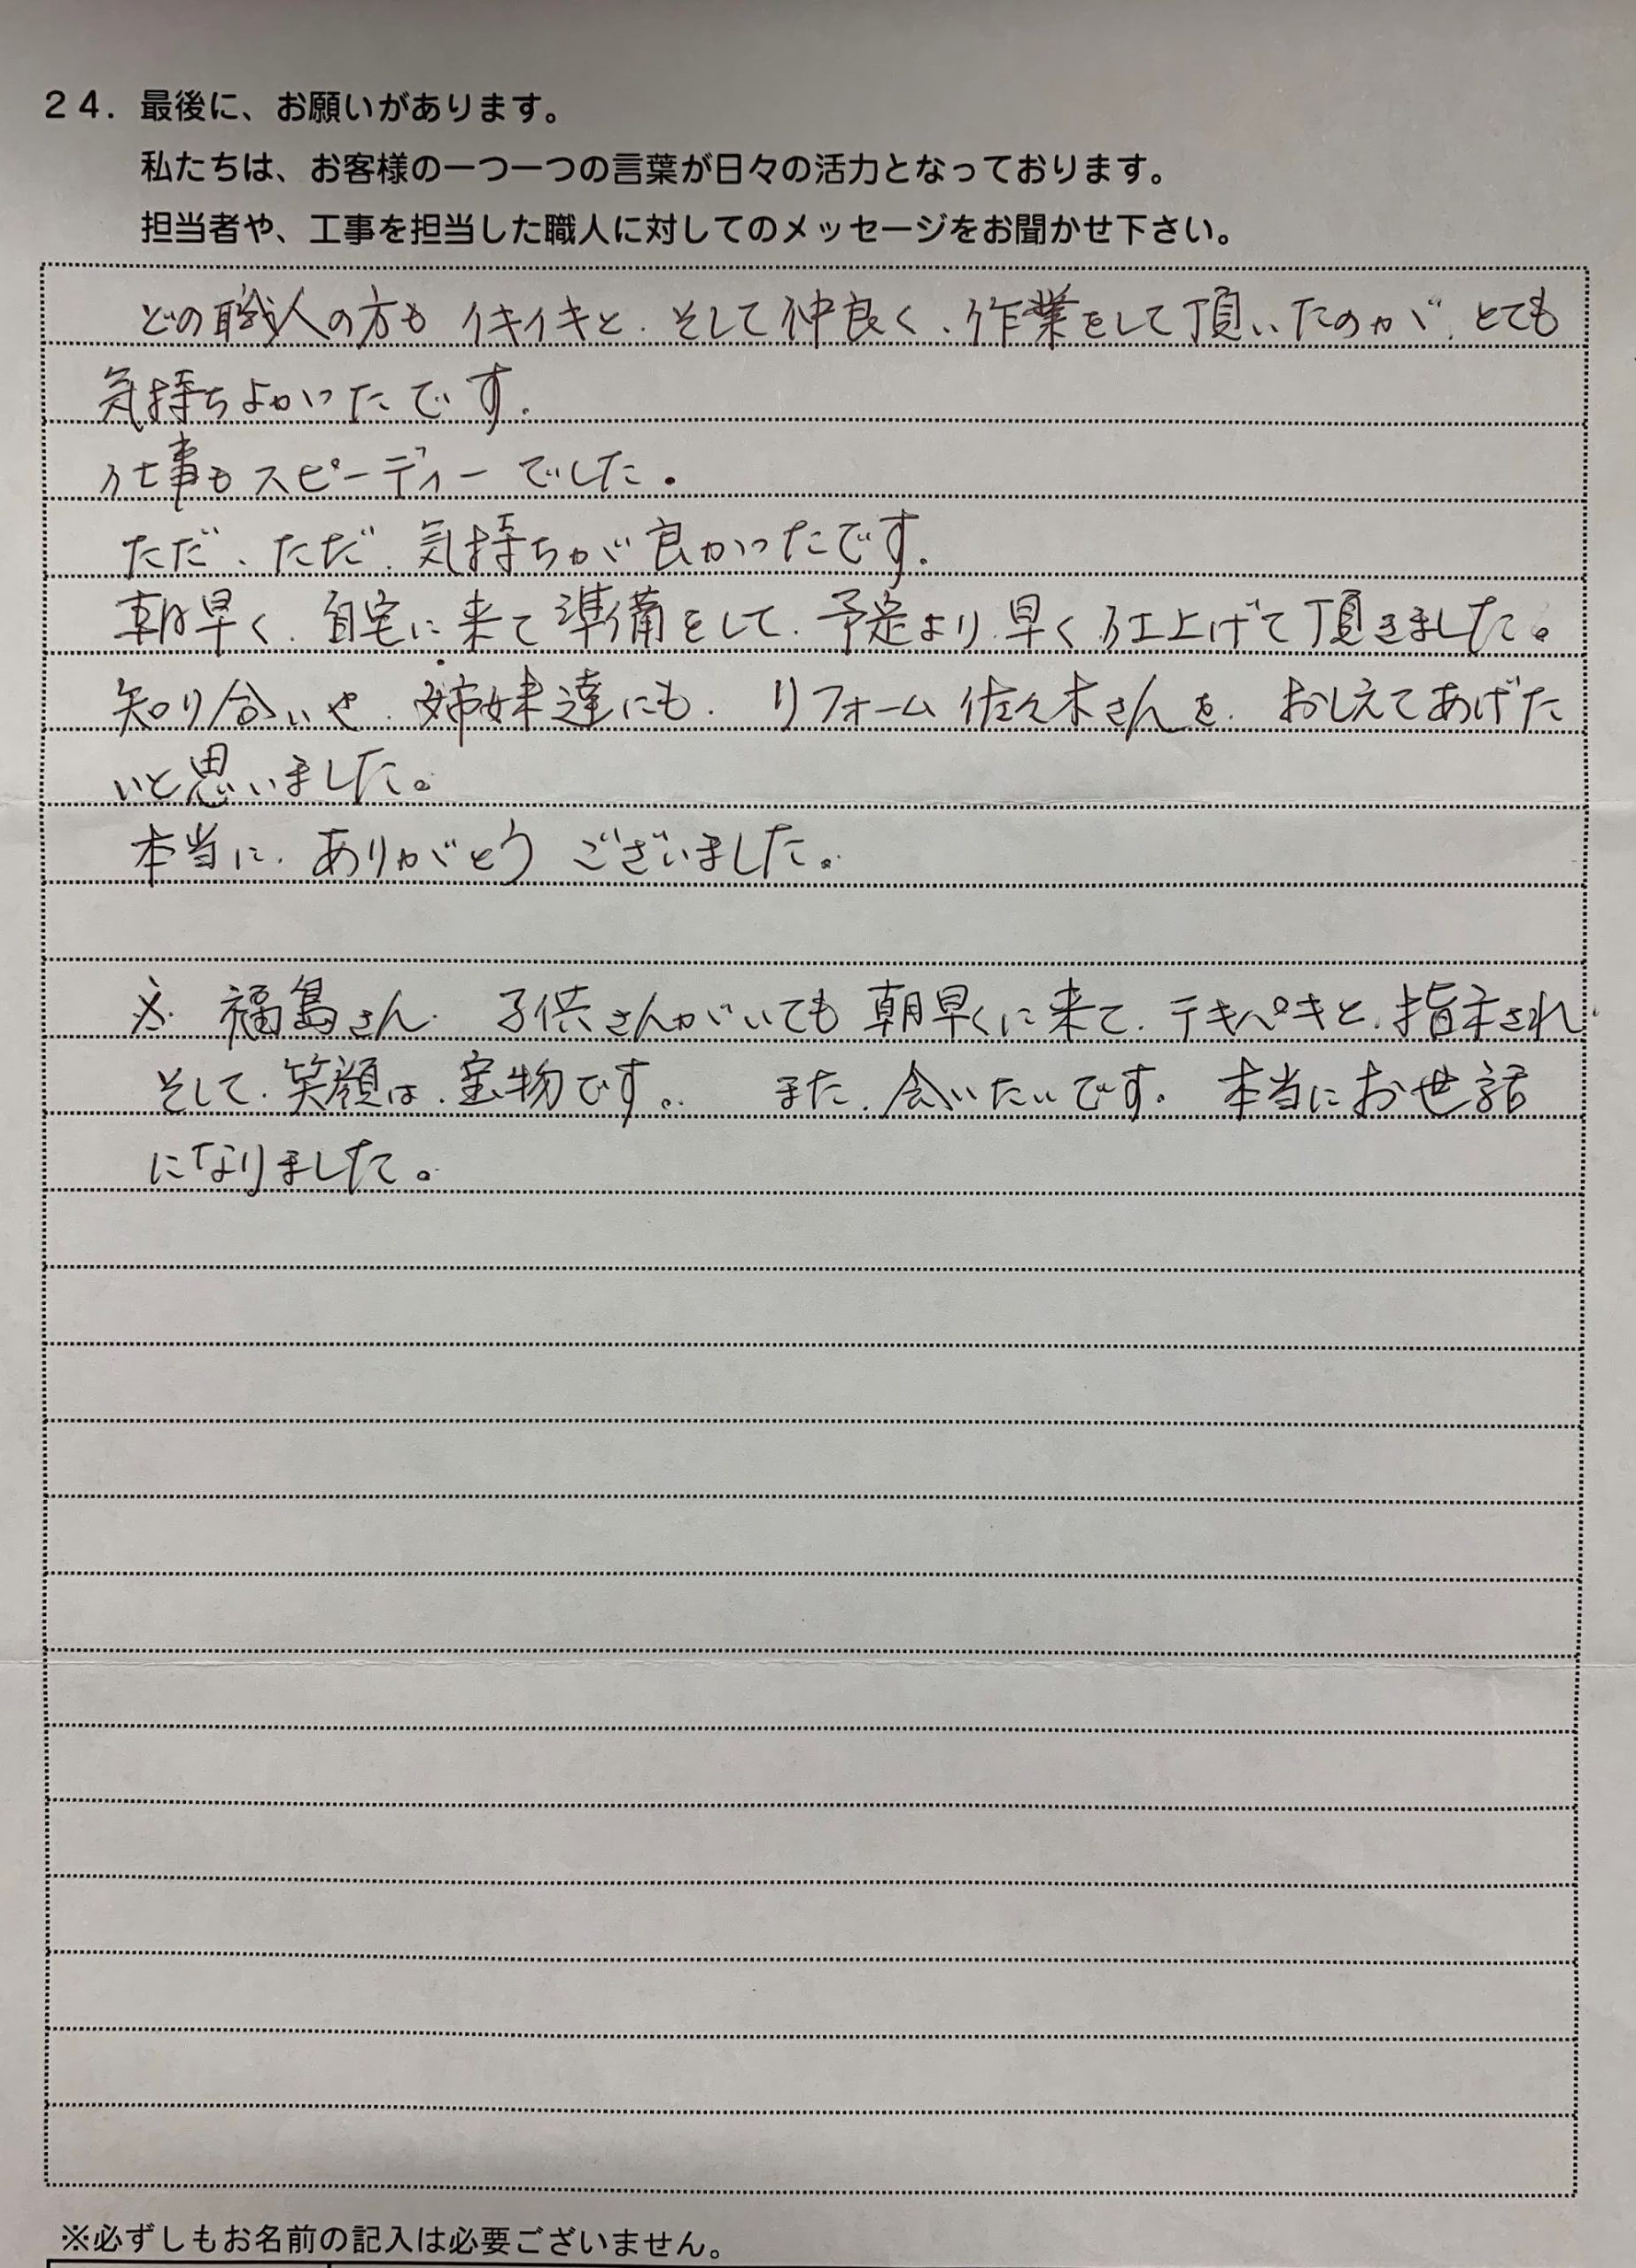 ２４．最後に、お願いがあります。
私たちは、お客様の一つ一つの言葉が日々の活力となっております。
担当者や、工事を担当した職人に対してのメッセージをお聞かせ下さい。
どの職人の方も イキイキと、そして仲良く、作業をして頂いたのが、とても
気持ちよかったです。
仕事もスピーディーでした。
ただ、ただ、気持ちが良かったです。
朝早く、自宅に来て準備をして、予定より早く仕上げて頂きました。
知り合いや、姉妹達にも、リフォーム佐々木さんを、おしえてあげた
いと思いました。
本当に、ありがとうございました。
※ 福島さん、子供さんがいても朝早くに来て、テキパキと、指示され、
そして、笑顔は、宝物です。 また、会いたいです。本当にお世話
になりました。
※必ずしもお名前の記入は必要ございません。